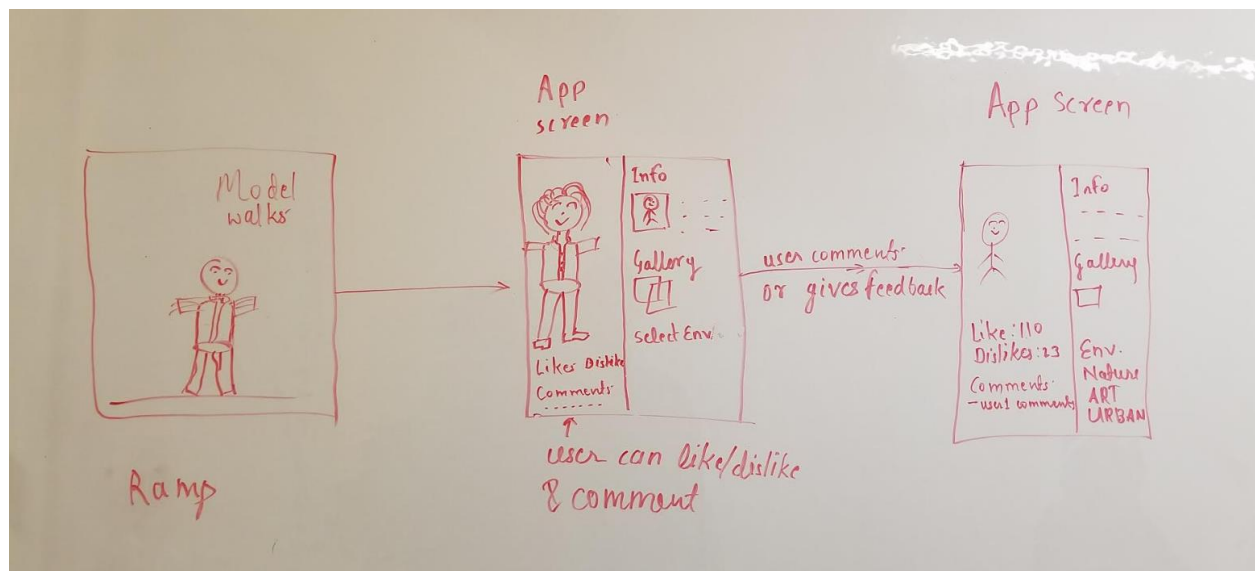 Model
walks
Ramp
App
screen
Info
Gallery
select Env.
Likes Dislike
Comments
user can like/dislike
& comment
user comments
or gives feedback
App screen
Info
Gallery
Like:110
Dislikes:23
Comments
-user1 comments
Env.
Nature
ART
URBAN